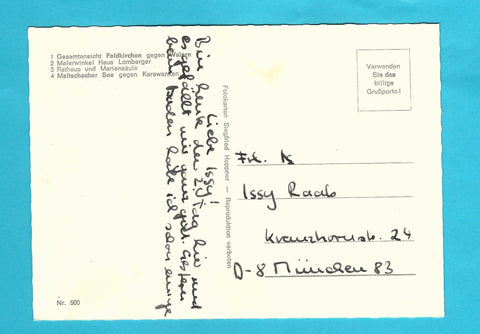 1 Gesamtansicht Feldkirchen gegen Walern
2 Malerwinkel Haus Lomberger
3 Rathaus und Mariensäule
4 Maltschacher See gegen Karawanken
Liebe Issy!
Bin heute den 2. Tag hier und
es gefällt mir ganz gut. Gestern
beim Baden habe ich schon einige
Fotokarten Siegfried Hoppner — Reproduktion verboten
Verwenden
Sie das
billige
Grußporto!
Frl.
Issy Raab
Kranzhornstr. 24
D-8 München 83
Nr. 500